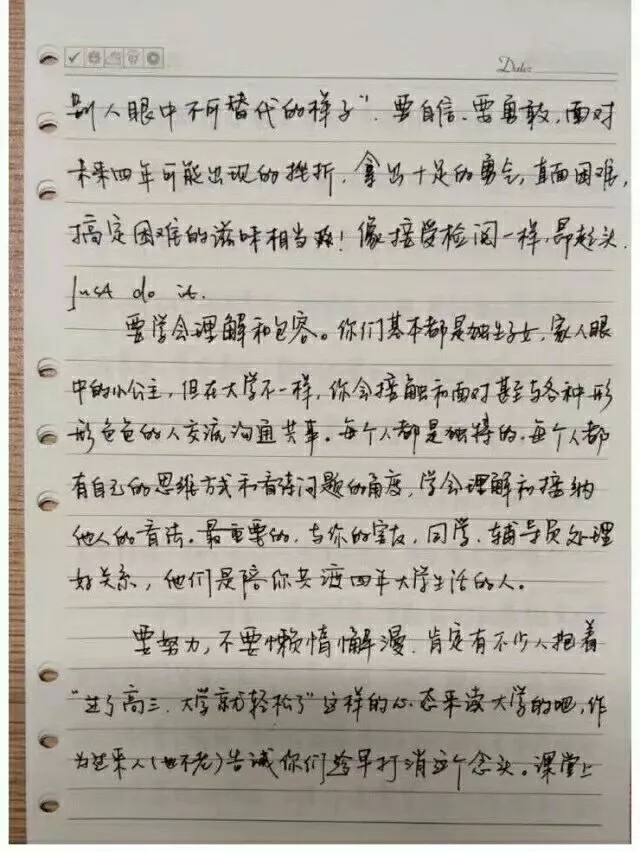 Date:
别人眼中不可替代的样子”.要自信、要勇敢,面对
未来四年可能出现的挫折,拿出十足的勇气,直面困难,
搞定困难的滋味相当爽!像接受检阅一样,昂起头.
Just do it.
要学会理解和包容。你们基本都是独生子女,家人眼
中的小公主,但在大学不一样,你会接触和面对甚至与各种形
形色色的人交流沟通共事。每个人都是独特的,每个人都
有自己的思维方式和看待问题的角度,学会理解和接纳
他人的看法。最重要的,与你的室友,同学,辅导员处理
好关系,他们是陪你共渡四年大学生活的人。
要努力,不要懒惰懈漫.肯定有不少人抱着
“过了高三,大学就轻松了”这样的心态来读大学的吧,作
为过来人(也不老)告诫你们趁早打消这个念头。课堂上